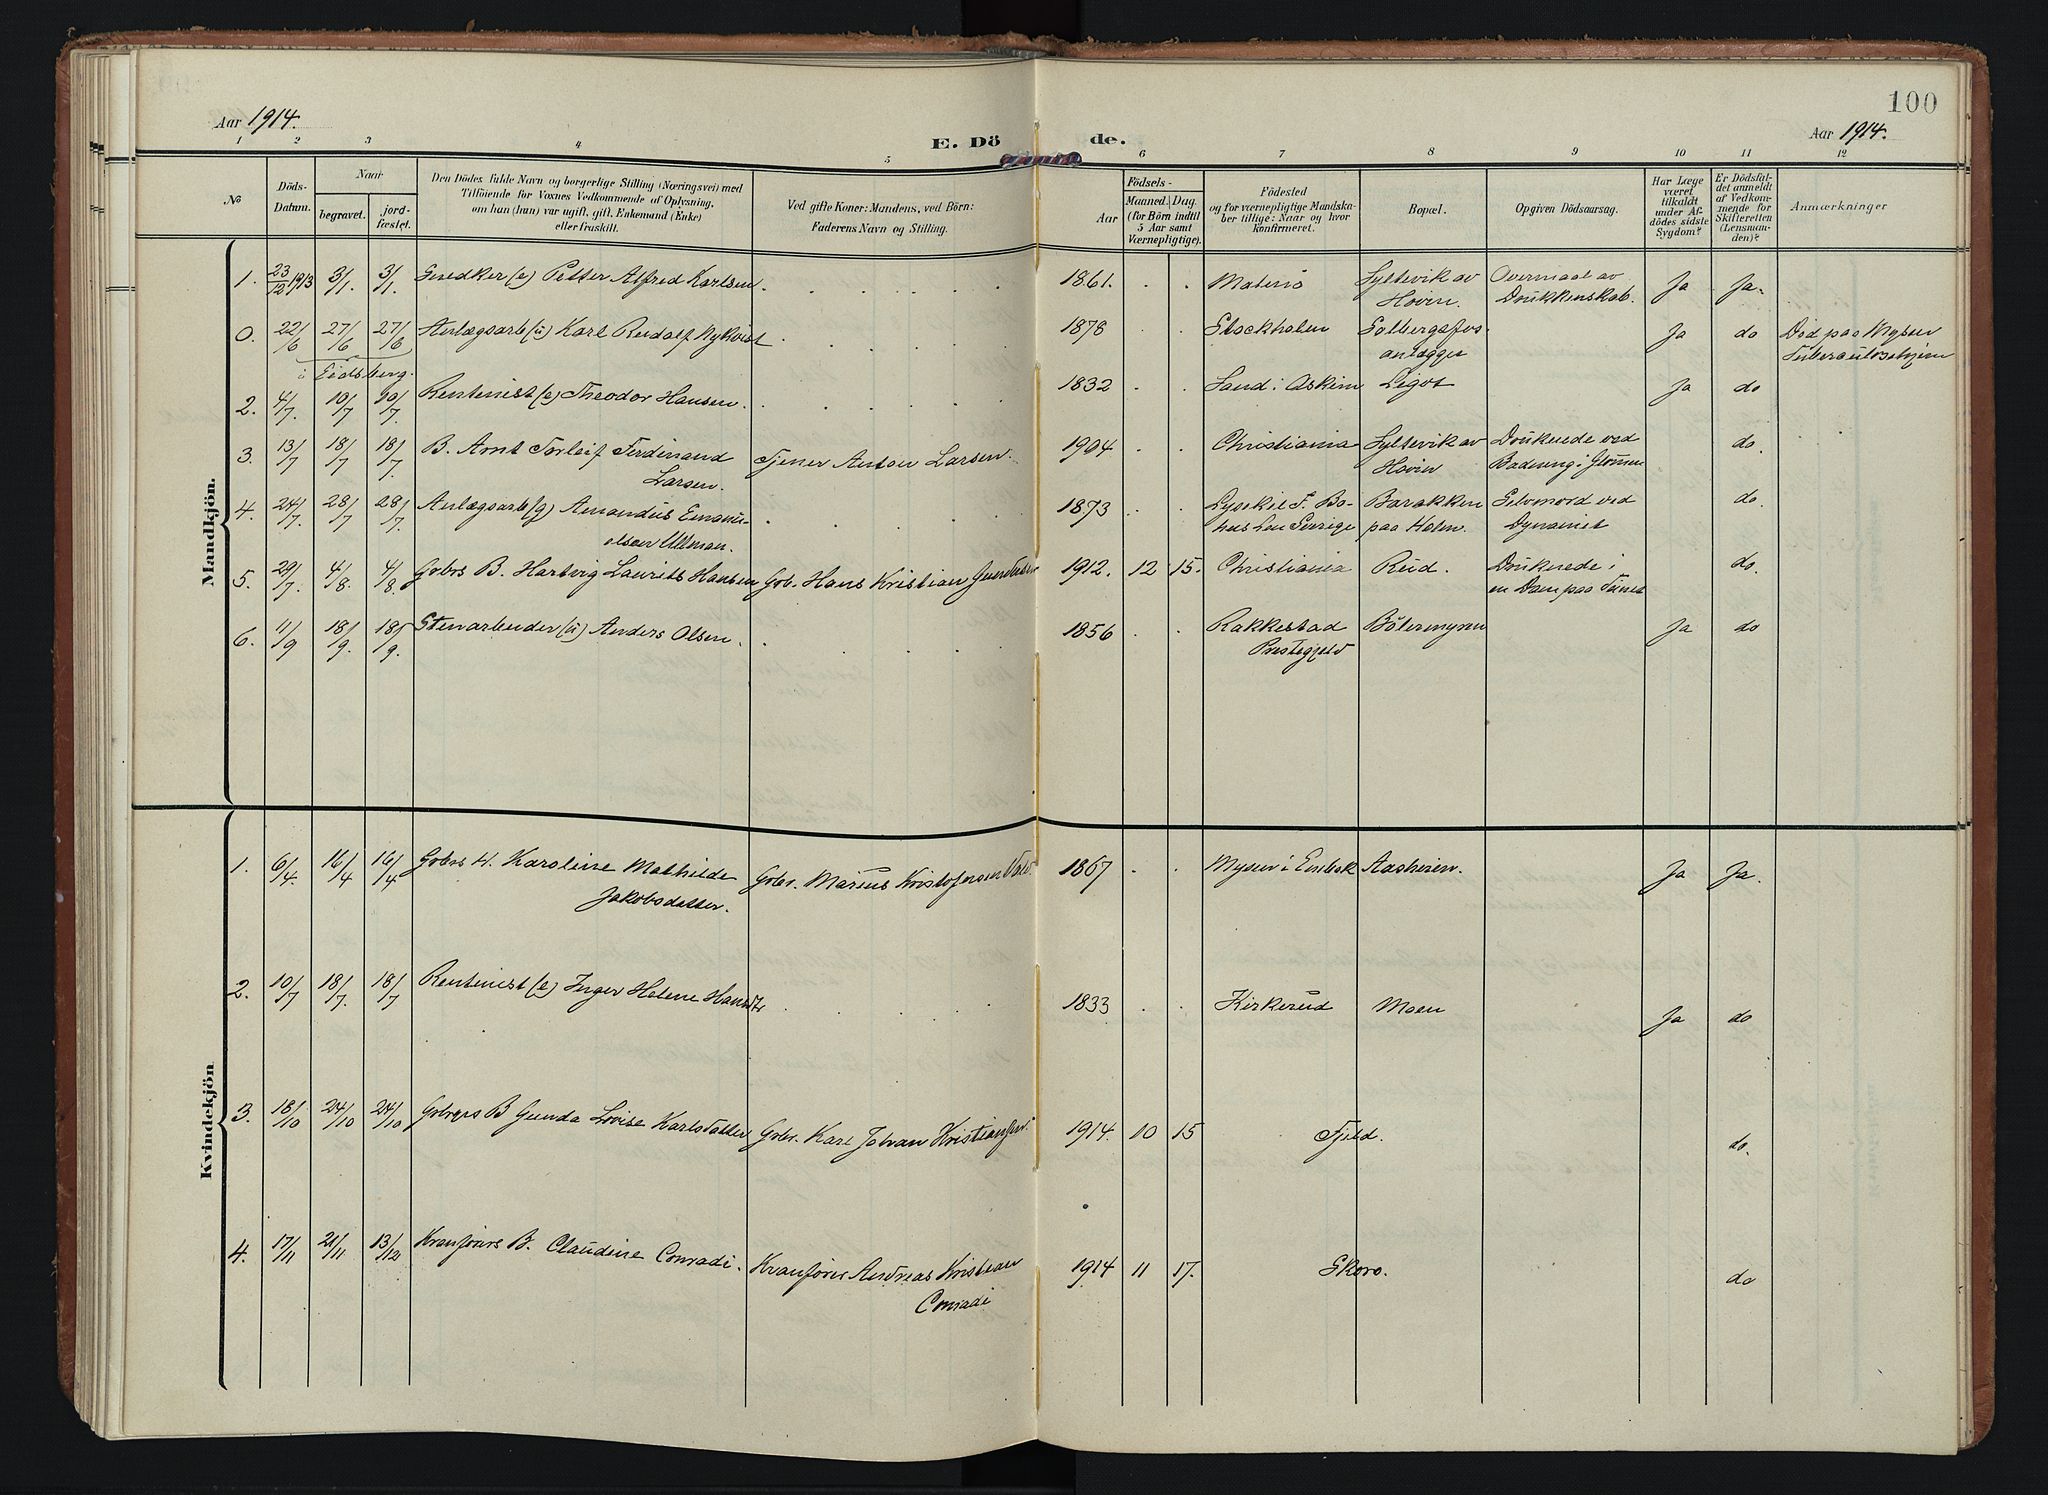 100
Aar 1914.
Aar 1914.
E. Dö de.
1 2 3 4 5 6 7 8 9 10 11 12
№
Döds-
Datum.
Naar
begravet.
jord-
fæstet.
Den Dödes fulde Navn og borgerlige Stilling (Næringsvei) med
Tilföiende for Voxnes Vedkommende af Oplysning,
om han (hun) var ugift, gift, Enkemand (Enke)
eller fraskilt.
Ved gifte Koner: Mandens, ved Börn:
Faderens Navn og Stilling.
Födsels-
Aar
Maaned. Dag.
(for Börn indtil
5 Aar samt
Værnepligtige).
Födested
og for værnepligtige Mandska-
ber tillige: Naar og hvor
konfirmeret.
Bopæl.
Opgiven Dödsaarsag.
Har Læge
været
tilkaldt
under Af-
dödes sidste
Sygdom?
Er Dödsfal-
det anmeldt
af Vedkom-
mende for
Skifteretten
(Lensman-
den)?
Anmærkninger
Mandkjön.
1. 23/12 1913 3/1. 3/1. Snedker (e) Petter Alfred Karlsen. 1861. Syltevik av Overmaal av
Hovin. Drukkenskab. Ja Ja.
0. 22/6 27/6 27/6 Anlægsarb (u) Karl Rudolf Nykvist 1878 Stockholm Solbergsfos- Ja do Död paa Mysen
i Eidsberg. anlægget Tuberculosehjem
2. 4/7. 10/7 10/7 Rentenist (e) Theodor Hansen. 1832 Sand i Askim Ja do
3. 13/7 18/7 18/7. B. Arnt Torleif Ferdinand Tjener Anton Larsen. 1904 Christiania Syltevik av Druknede ved do.
Larsen. Hovin Badning i Glommen
4. 24/7. 28/7 28/7. Anlægsarb (g) Amandus Emanu- 1873 Lysekil F. Bo- Barakken Selvmord ved do.
elsen Ullman. hus Len Sverige paa Holen. Dynamit
5. 29/7. 4/8. 4/8. Gbrs B. Hartvig Laurits Hansen Gbr. Hans Kristian Gundersen 1912. 12 15. Christiania Rud. Druknede i do.
en Dam paa Tunet
6. 11/9 18/9. 18/9. Stenarbeider (u) Anders Olsen. 1856 Rakkestad Bötermyren Ja do
Prestegjeld
Kvindekjön
1. 6/4. 16/4 16/4 Gbrs H. Karoline Mathilde Gbr. Marius Kristofersen 1867 Mysen i Aasheim. Ja Ja.
Jakobsdatter.
2. 10/7 18/7. 18/7 Rentenist (e) Inger Helene Hansdtr 1833 Kirkerud Moen Ja do
3. 18/10 24/10 24/10 Gbrs B Gunda Lovise Karlsdatter Gbr. Karl Johan Kristiansen 1914. 10 15 Fjeld. do.
4. 17/11 21/11 13/12 Kranförers B. Claudine Conradi. Kranförer Andreas Kristian 1914 11 17. Skoro. do
Conradi